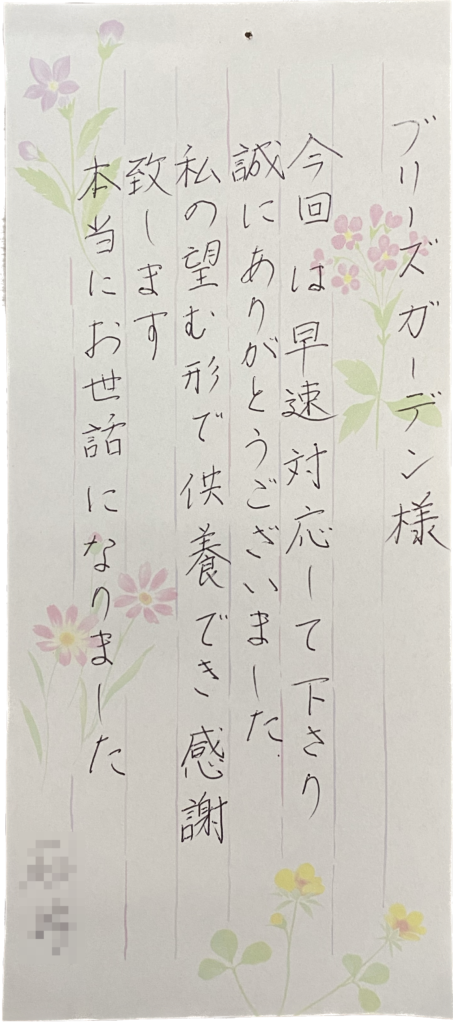 ブリーズガーデン様
今回は早速対応して下さり
誠にありがとうございました.
私の望む形で供養でき感謝
致します
本当にお世話になりました